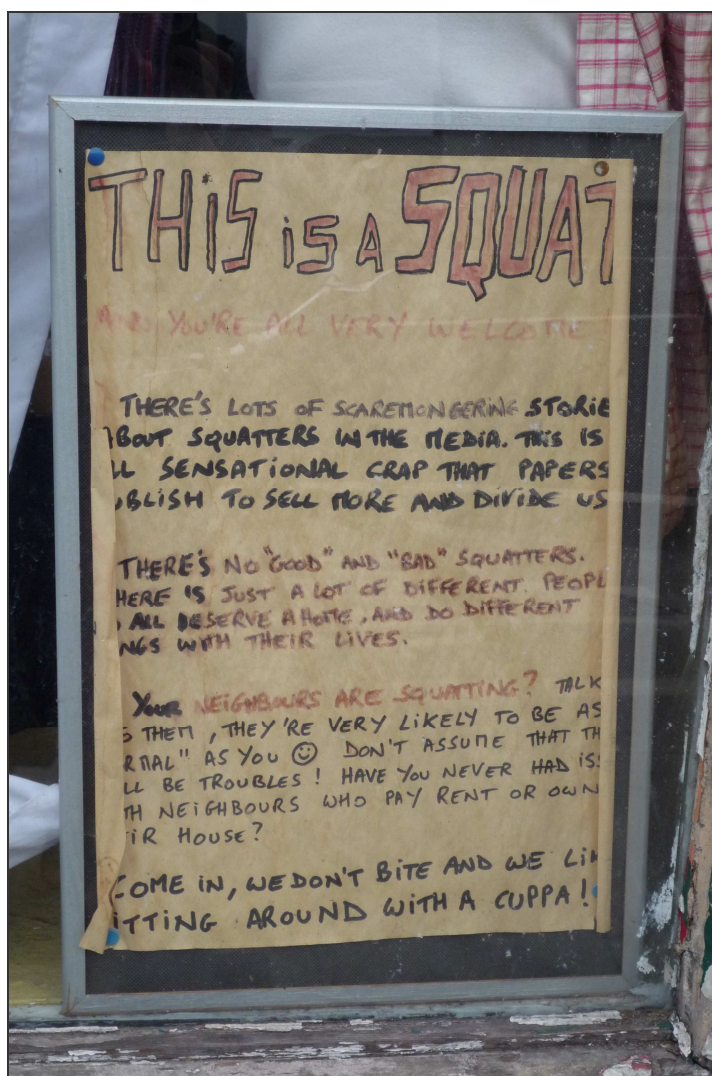 THIS IS A SQUAT
YOU'RE ALL VERY WELCOME
THERE'S LOTS OF SCAREMONGERING STORIE
ABOUT SQUATTERS IN THE MEDIA. THIS IS
LL SENSATIONAL CRAP THAT PAPERS
UBLISH TO SELL MORE AND DIVIDE US
THERE'S NO "GOOD" AND "BAD" SQUATTERS.
HERE IS JUST A LOT OF DIFFERENT PEOPL
ALL DESERVE A HOME, AND DO DIFFERENT
NGS WITH THEIR LIVES.
YOUR NEIGHBOURS ARE SQUATTING? TALK
THEM, THEY'RE VERY LIKELY TO BE AS
RMAL" AS YOU ☺ DON'T ASSUME THAT TH
LL BE TROUBLES! HAVE YOU NEVER HAD ISS
TH NEIGHBOURS WHO PAY RENT OR OWN
IR HOUSE?
COME IN, WE DON'T BITE AND WE LIK
ITTING AROUND WITH A CUPPA!